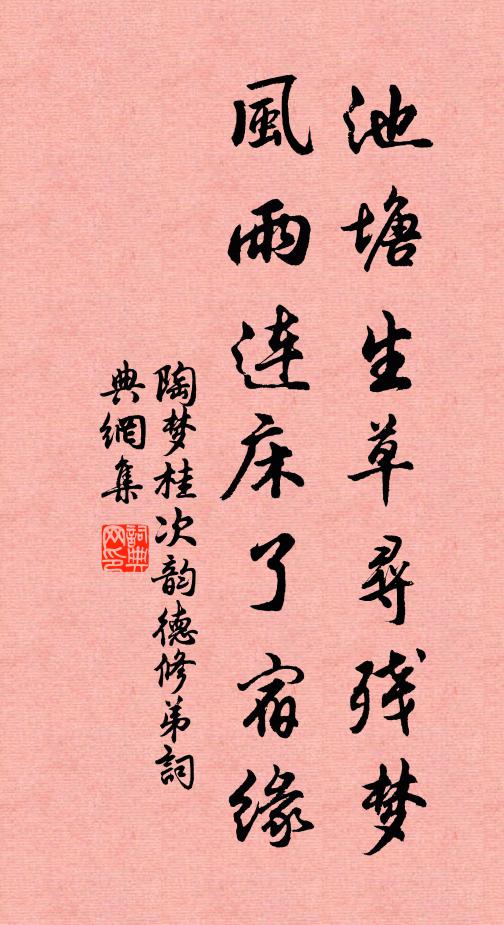 池塘生草尋残梦
風雨連床了宿緣
陶梦桂次韵德修弟詞
典網集
詞典网印